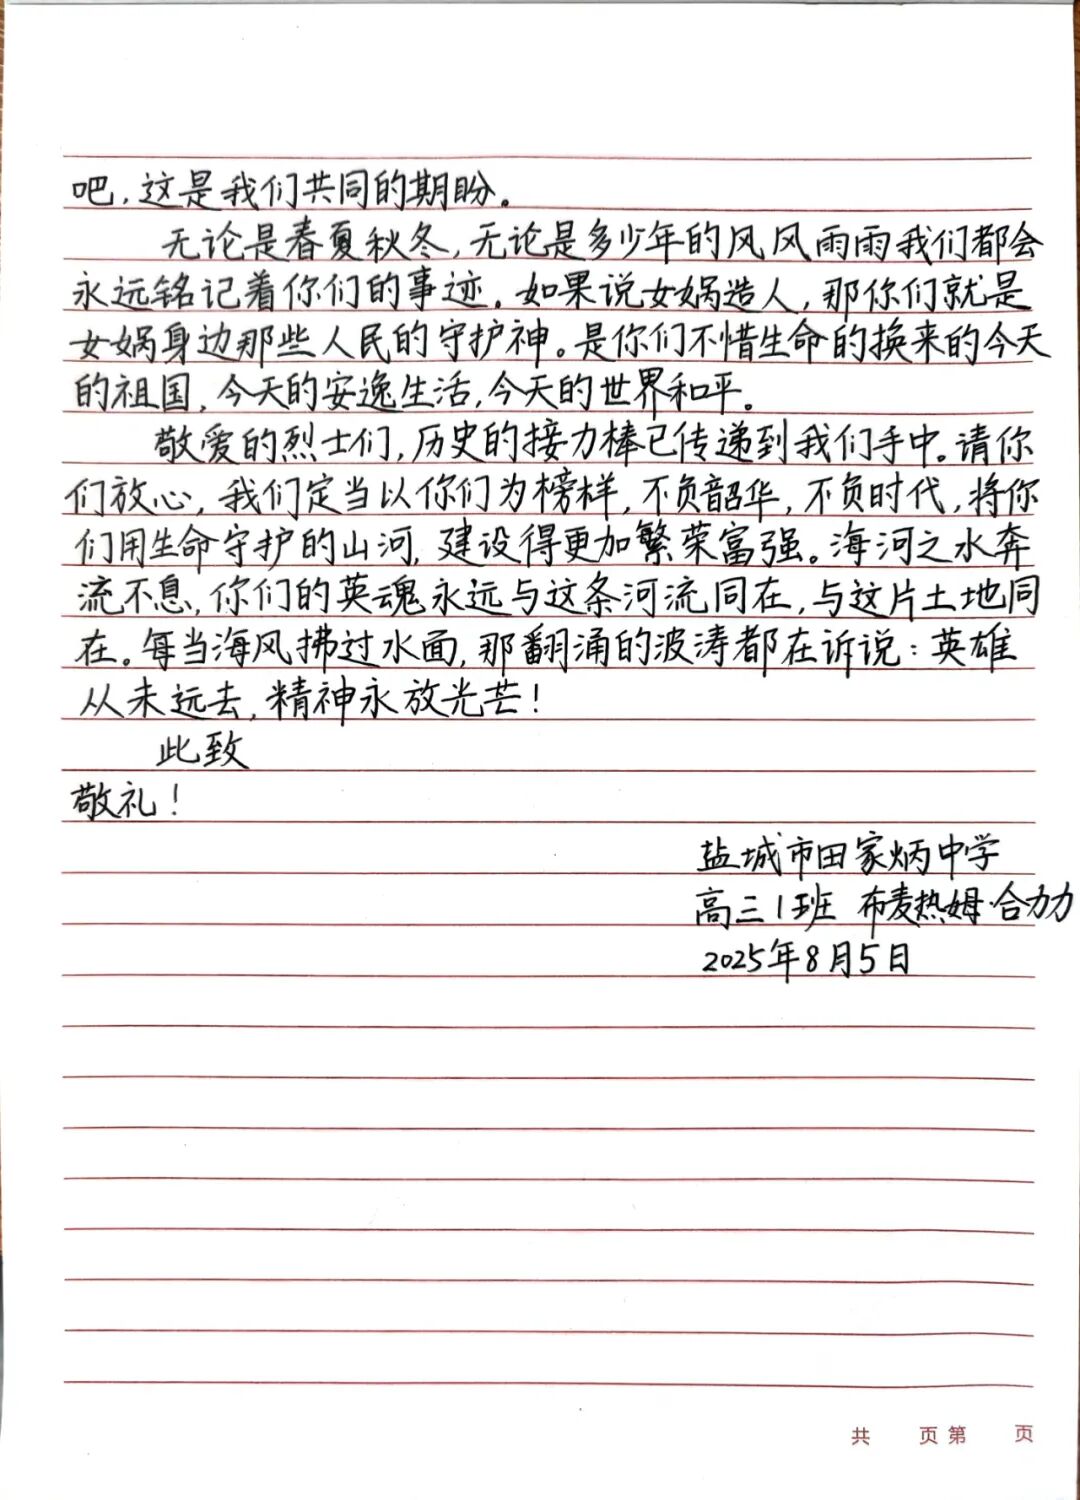 吧，这是我们共同的期盼。
无论是春夏秋冬，无论是多少年的风风雨雨我们都会
永远铭记着你们的事迹。如果说女娲造人，那你们就是
女娲身边那些人民的守护神。是你们不惜生命的换来的今天
的祖国，今天的安逸生活，今天的世界和平。
敬爱的烈士们，历史的接力棒已传递到我们手中。请你
们放心，我们定当以你们为榜样，不负韶华，不负时代，将你
们用生命守护的山河，建设得更加繁荣富强。海河之水奔
流不息，你们的英魂永远与这条河流同在，与这片土地同
在。每当海风拂过水面，那翻涌的波涛都在诉说：英雄
从未远去，精神永放光芒！
此致
敬礼！
盐城市田家炳中学
高三1班 布麦热姆·合力力
2025年8月5日
共 页 第 页